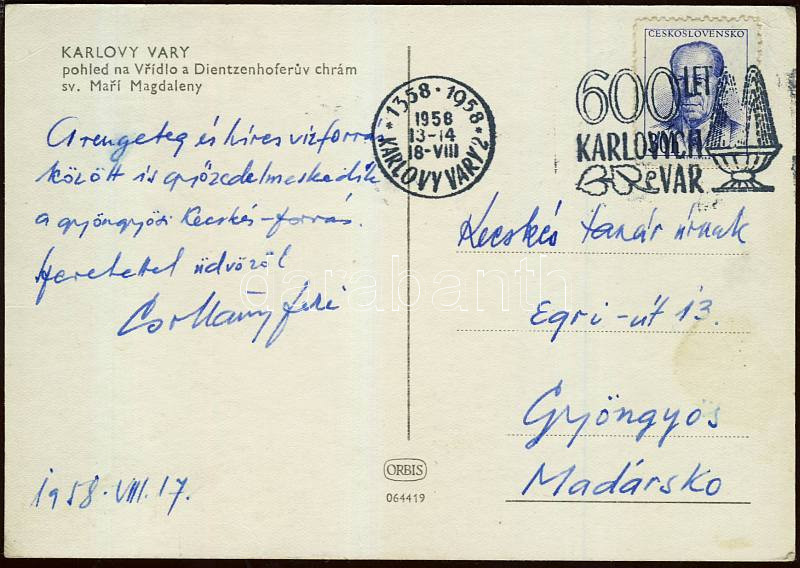 KARLOVY VARY
pohled na Vřídlo a Dientzenhoferův chrám
sv. Maří Magdaleny
A rengeteg és híres vízforrás
között is győzedelmeskedik
a gyöngyösi Kecskés-forrás.
Szeretettel üdvözöl
Feri
1958. VIII. 17.
ORBIS
064419
1358 · 1958
1958
13-14
18-VIII
* KARLOVY VARY 2 *
ČESKOSLOVENSKO
600 LET
KARLOVÝCH
VAR
Kecskés tanár úrnak
Egri-út 13.
Gyöngyös
Madársko
darabanth